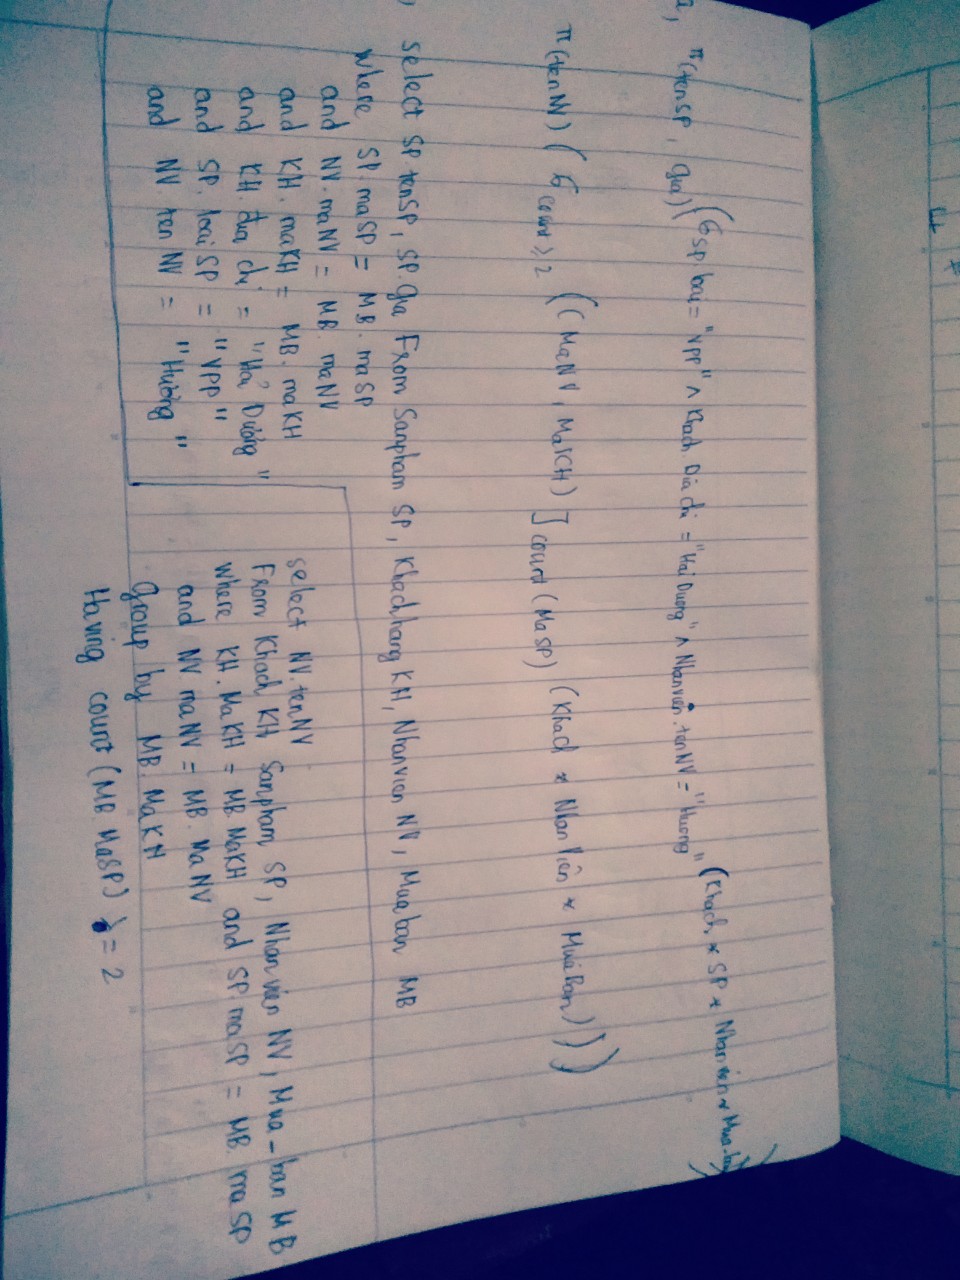 a, π(tenSP, gia) (σSP.loai = "VPP" ∧ Khach.Dia chi = "Hai Duong" ∧ Nhanvien.tenNV = "Huong" (Khach * SP * Nhan vien * Mua.ban))
π(tenNV) (σcount ≥ 2 ((MaNV, MaKH) ℑcount (MaSP) (Khach * Nhan Viên * Mua Ban)))
select SP.tenSP, SP.gia From Sanpham SP, Khachhang KH, Nhanvien NV, Mua ban MB
where SP.maSP = MB.maSP
and NV.maNV = MB.maNV
and KH.maKH = MB.maKH
and KH.địa chỉ = "Hải Dương"
and SP.loai SP = "VPP"
and NV.ten NV = "Hương"
select NV.tenNV
From Khach KH, Sanpham SP, Nhan vien NV, Mua_ban MB
where KH.MaKH = MB.MaKH and SP.maSP = MB.maSP
and NV.maNV = MB.MaNV
Group by MB.MaKH
Having count (MB.MaSP) >= 2